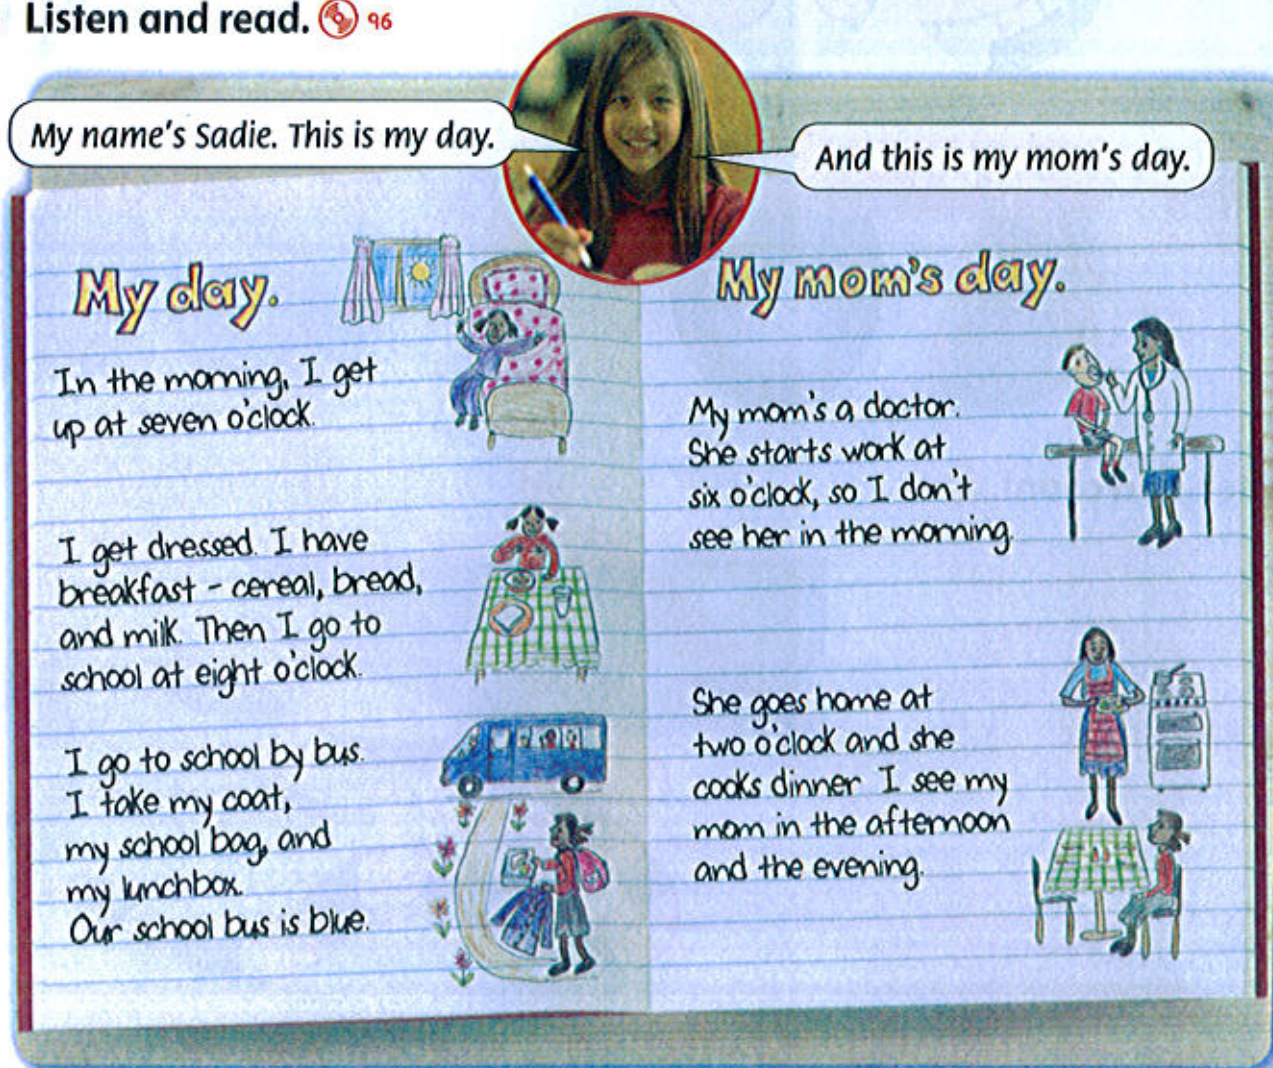 Listen and read. 96
My name's Sadie. This is my day.
And this is my mom's day.
My day.
In the morning, I get
up at seven o'clock.
I get dressed. I have
breakfast - cereal, bread,
and milk. Then I go to
school at eight o'clock.
I go to school by bus.
I take my coat,
my school bag, and
my lunchbox.
Our school bus is blue.
My mom's day.
My mom's a doctor.
She starts work at
six o'clock, so I don't
see her in the morning.
She goes home at
two o'clock and she
cooks dinner. I see my
mom in the afternoon
and the evening.